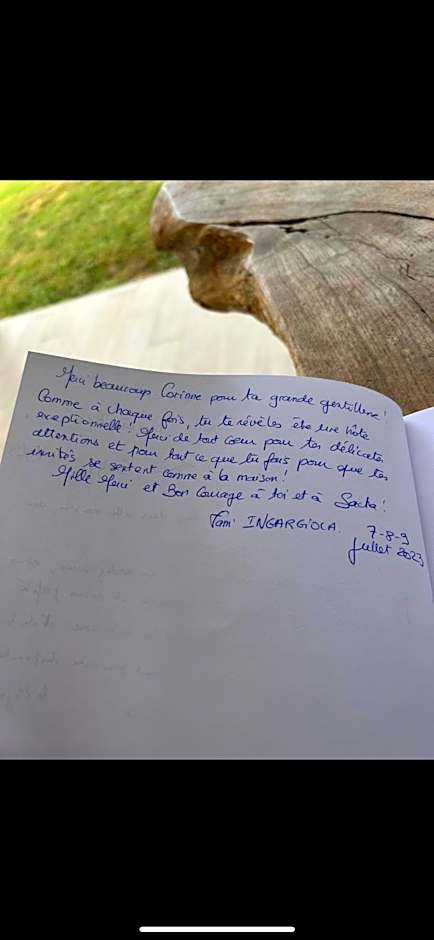 Merci beaucoup Corinne pour ta grande gentillesse!
Comme à chaque fois, tu te révèles être une hôte
exceptionnelle! Merci de tout cœur pour tes délicates
attentions et pour tout ce que tu fais pour que tes
invités se sentent comme à la maison!
Mille Merci et Bon Courage à toi et à Sacha!
Fam: INGARGIOLA.
7-8-9
Juillet 2023